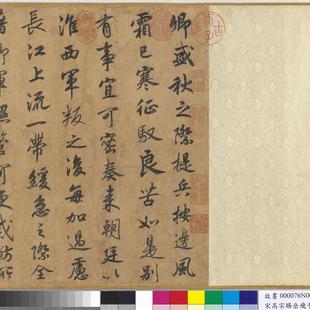 卿盛秋之際提兵按邊風
霜已寒征馭良苦如是別
有事宜可密奏來朝廷以
淮西軍叛之後每加過慮
長江上流一帶緩急之際全
藉卿軍照管可更戒飭所
故書 000076N0
宋高宗賜岳飛